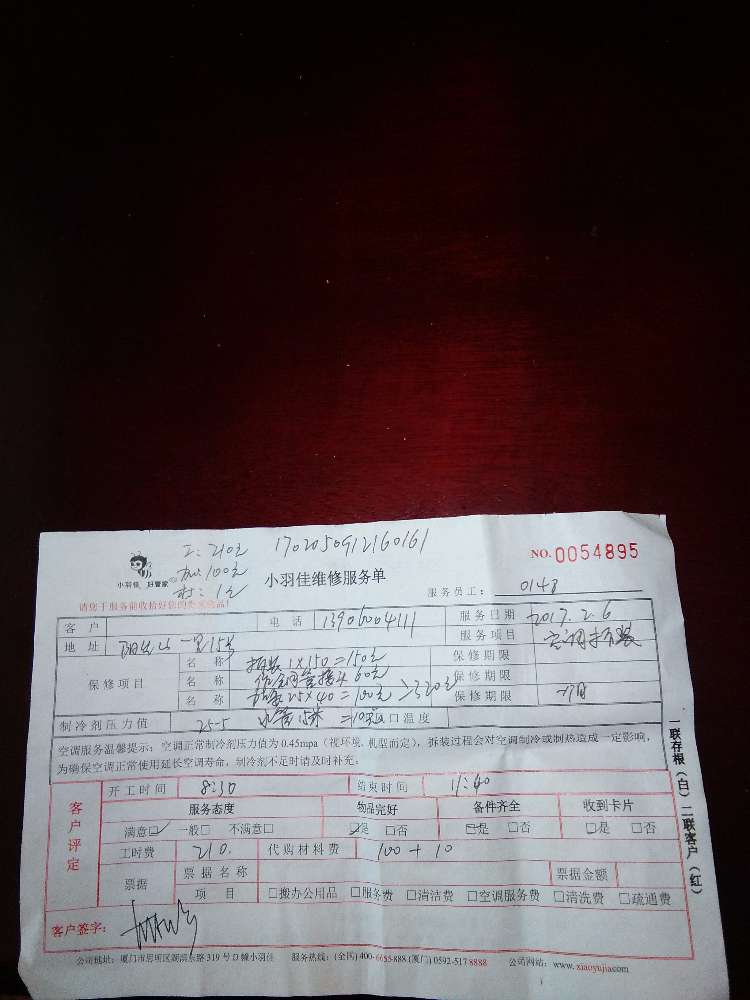 工：210元 1702050912160161
加：100元
材：1元
NO.0054895
小羽佳 好管家
小羽佳维修服务单
服务员工： 0148
请您于服务前收拾好您的贵重物品！
客户 电话 13906004111 服务日期 2017.2.6
地址 一里15号 服务项目 空调拆装
保修项目
名称 拆装1×150=150元 保修期限
名称 接头60元 保修期限
名称 2.5×40=100元 >320元 保修期限 一个月
制冷剂压力值 25-5 水管15米=10元 出口温度
空调服务温馨提示：空调正常制冷剂压力值为0.45mpa（视环境、机型而定），拆装过程会对空调制冷或制热造成一定影响，
为确保空调正常使用延长空调寿命，制冷剂不足时请及时补充。
客户评定
开工时间 8:30 结束时间 11:40
服务态度 物品完好 备件齐全 收到卡片
满意☑ 一般□ 不满意□ ☑是 □否 □是 □否 □是 □否
工时费 210. 代购材料费 100+10
票据 票据名称 票据金额
项目 □搬办公用品 □服务费 □清洁费 □空调服务费 □清洗费 □疏通费
客户签字：
公司地址：厦门市思明区湖滨东路319号D幢小羽佳 服务热线：(全国)400-6655-888 (厦门)0592-5178888 公司网站：www.xiaoyujia.com
一联存根（白）二联客户（红）